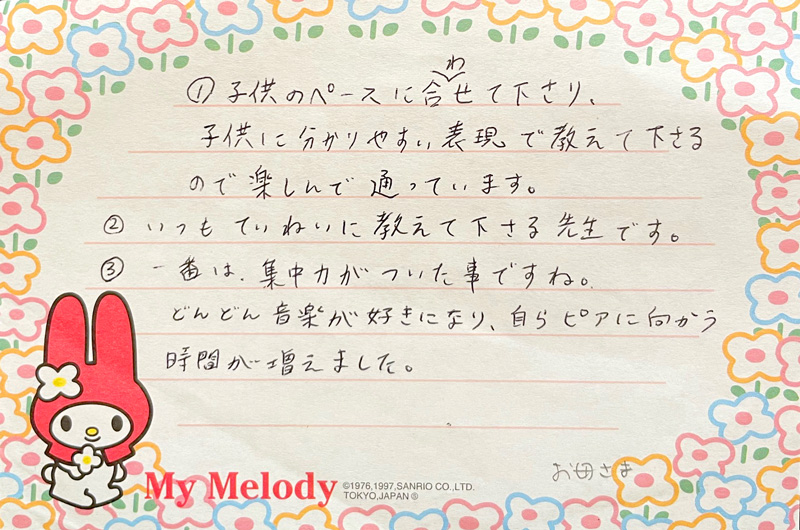 ①子供のペースに合わせて下さり、
子供に分かりやすい表現で教えて下さる
ので楽しんで通っています。
②いつもていねいに教えて下さる先生です。
③一番は、集中力がついた事ですね。
どんどん音楽が好きになり、自らピアに向かう
時間が増えました。
お母さま
My Melody
©1976,1997,SANRIO CO.,LTD.
TOKYO,JAPAN ®